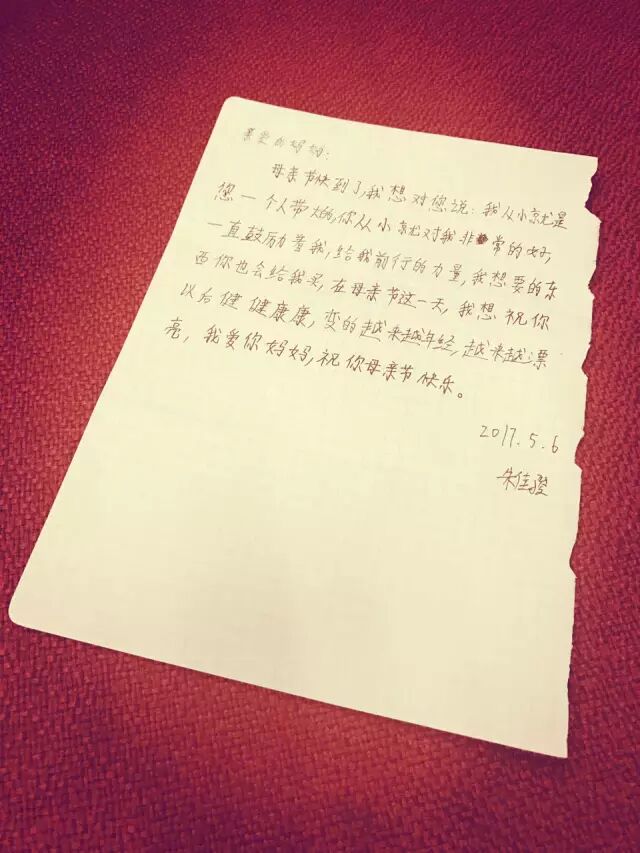 亲爱的妈妈：
母亲节快到了,我想对您说：我从小就是
您一个人带大的,你从小就对我非常的好,
一直鼓励着我,给我前行的力量,我想要的东
西你也会给我买,在母亲节这一天,我想祝你
以后健健康康,变的越来越年经,越来越漂
亮,我爱你妈妈,祝你母亲节快乐。
2017.5.6
朱佳骏